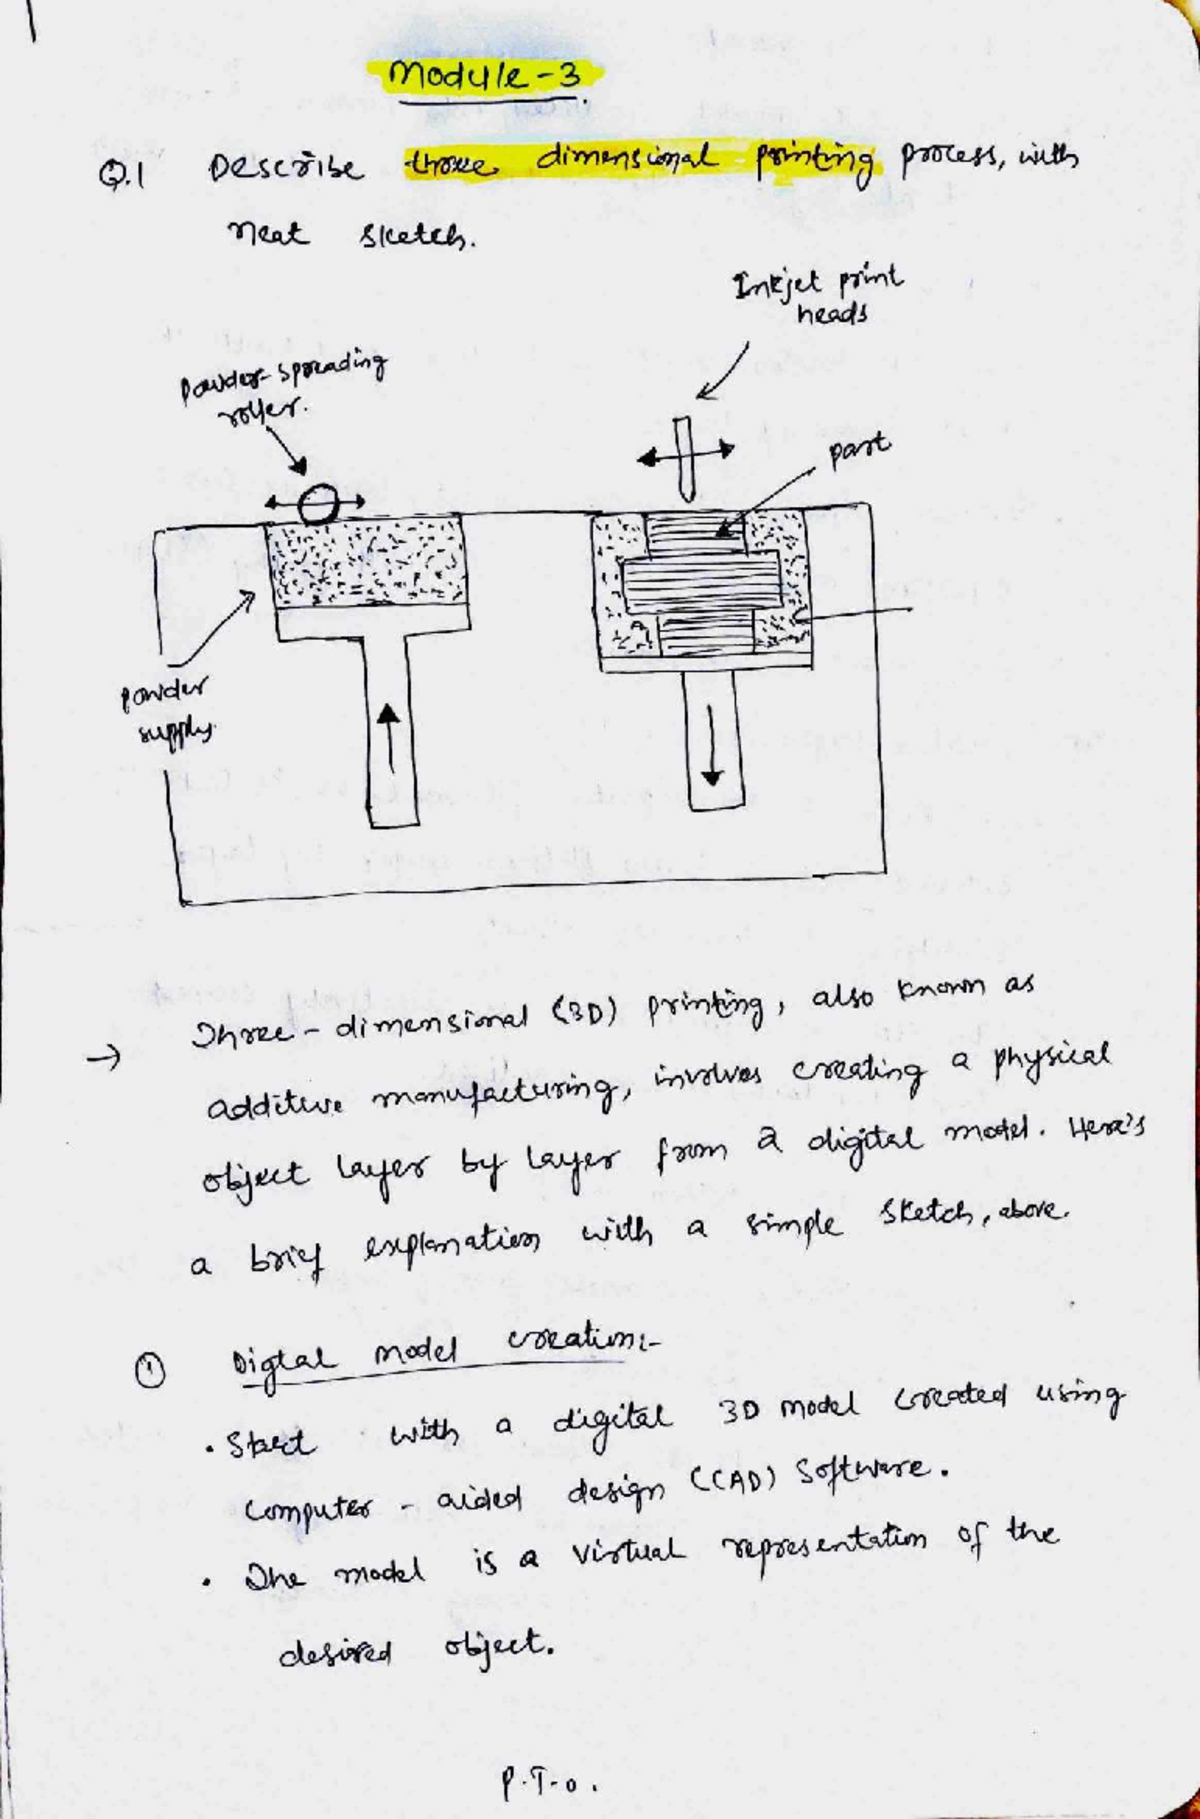 Module-3
Q.1 Describe three dimensional printing process, with
neat sketch.
Inkjet print
heads
Powder-spreading
roller.
part
powder
supply.
→ Three-dimensional (3D) printing, also known as
additive manufacturing, involves creating a physical
object layer by layer from a digital model. Here's
a brief explanation with a simple sketch, above.
① Digtal model creation:-
• Start with a digital 3D model created using
computer-aided design (CAD) software.
• The model is a virtual representation of the
desired object.
P.T.O.